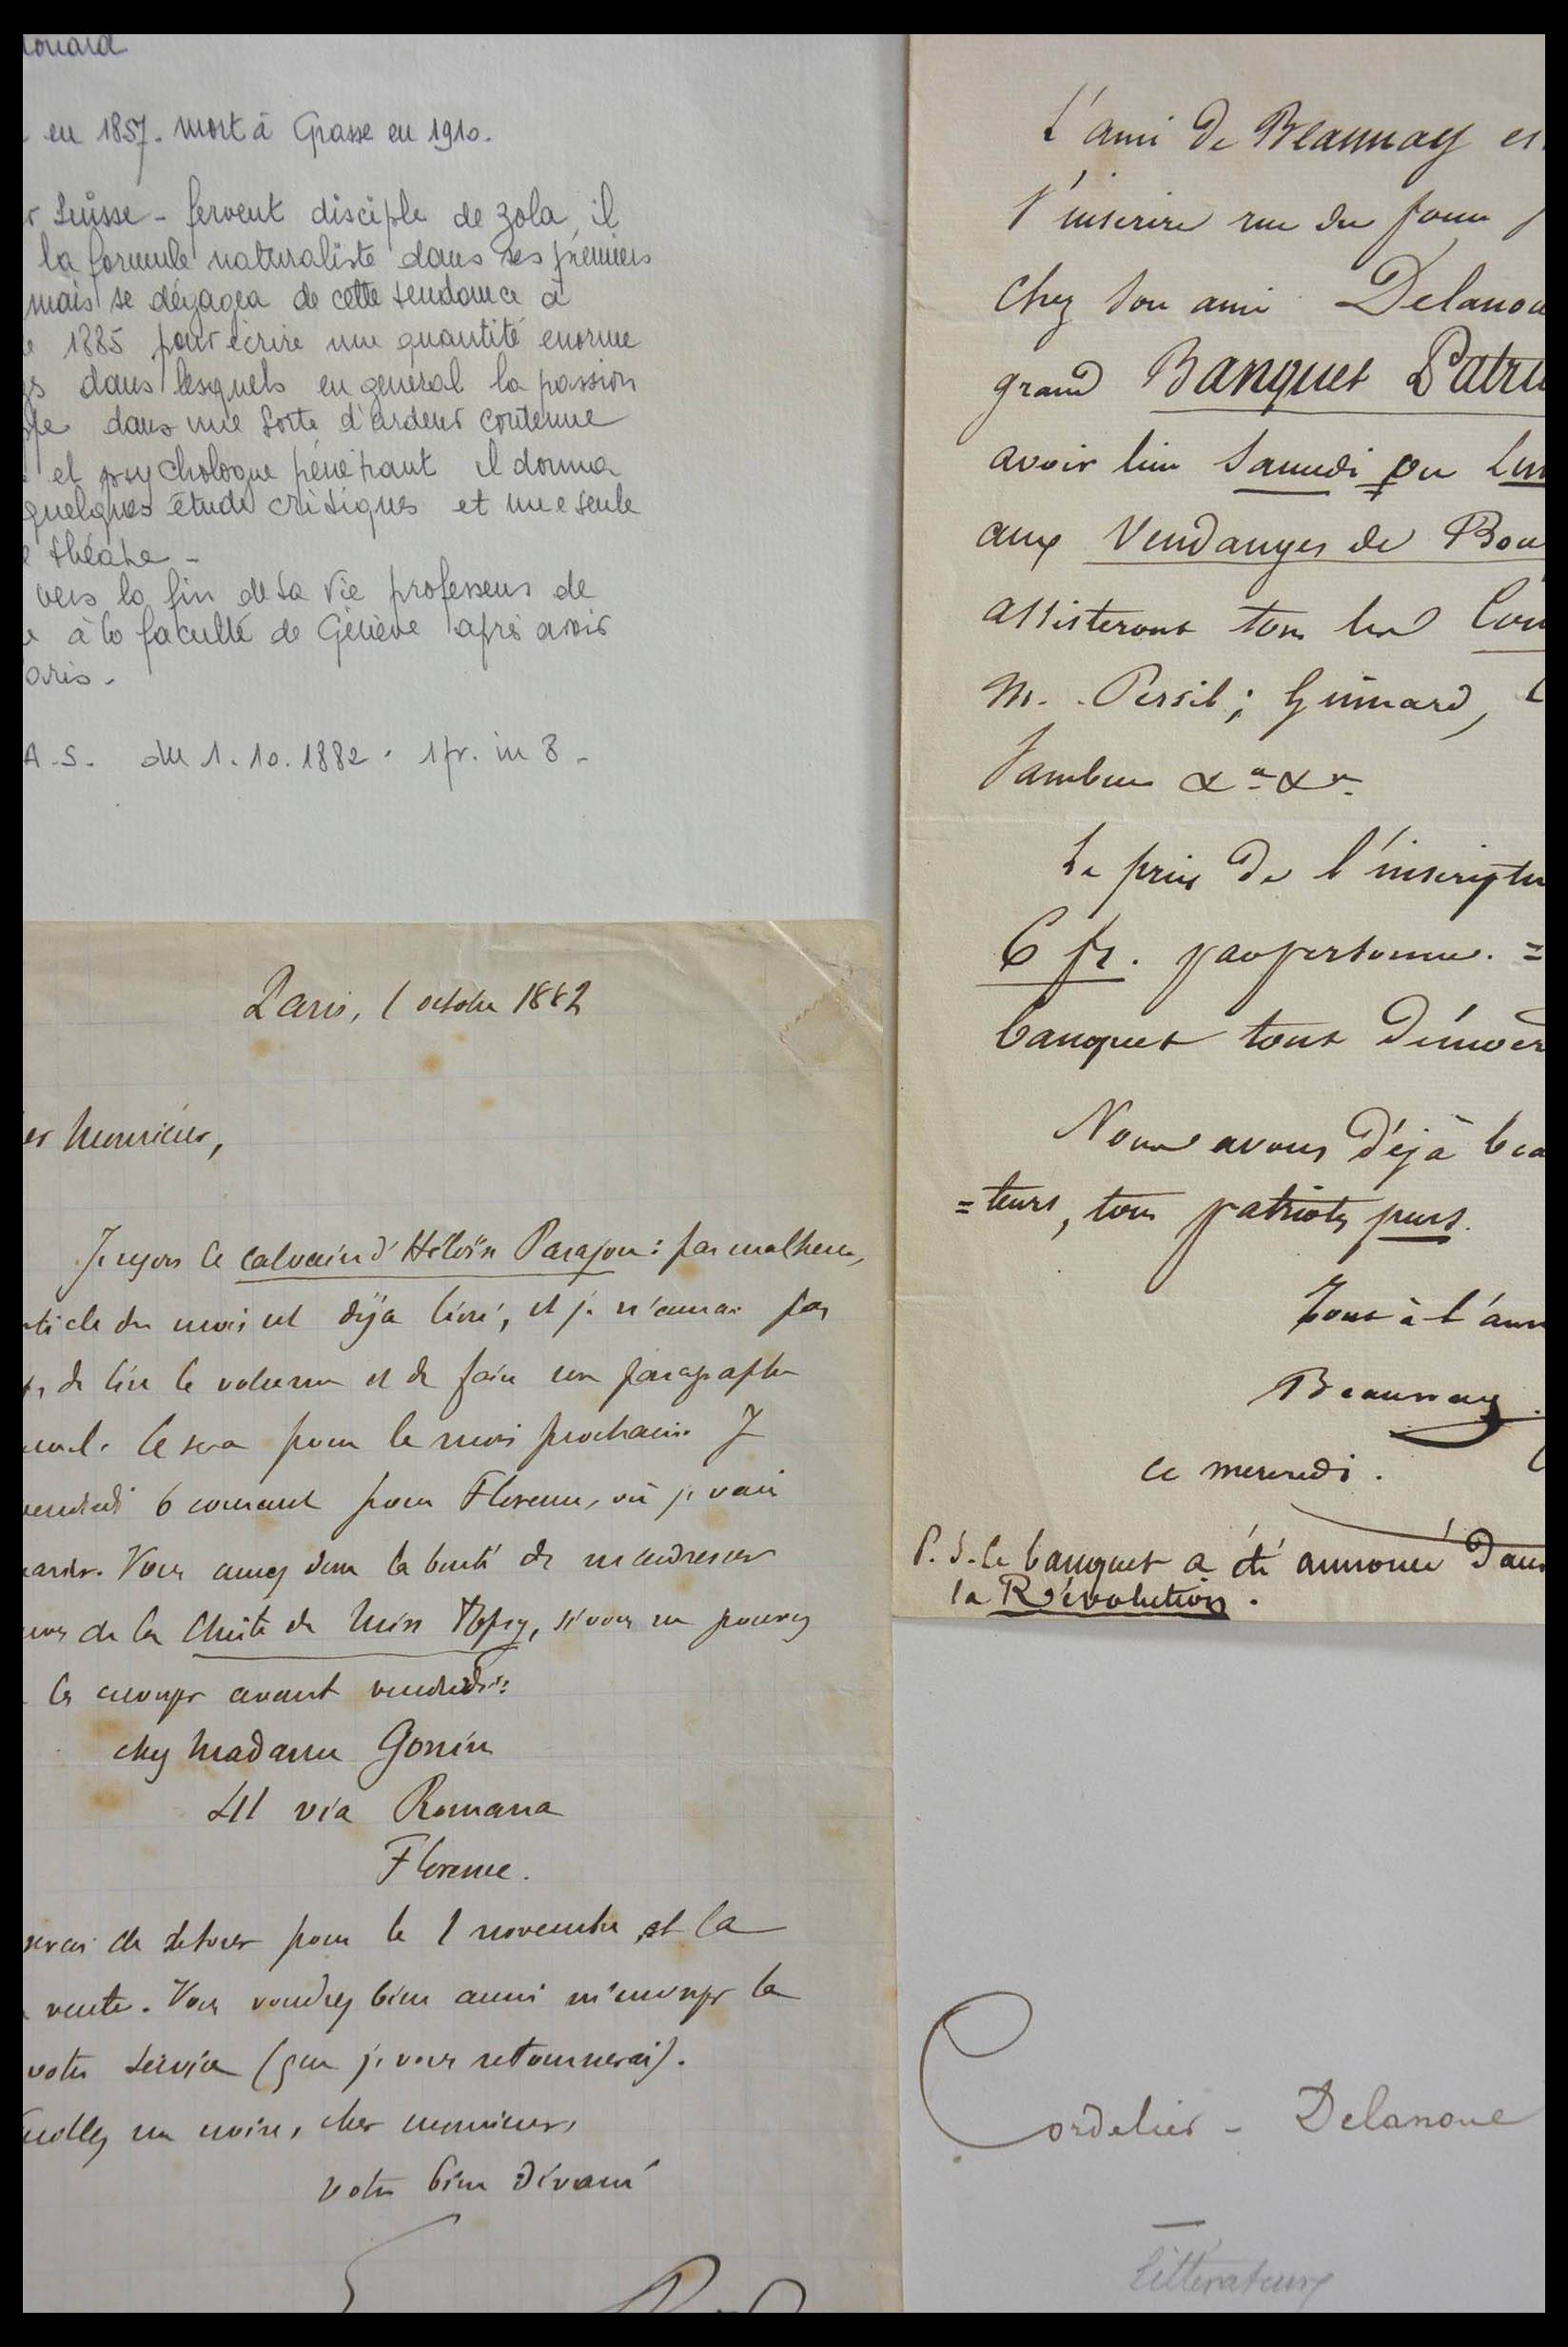 en 1857. mort à Grasse en 1910.
Suisse - fervent disciple de Zola, il
la formule naturaliste dans ses premiers
mais se dégagea de cette tendance à
1885 pour écrire une quantité enorme
dans lesquels en general la passion
dans une sorte d'ardeur contenue
et psychologue pénétrant il donna
quelques étude critiques et une seule
théatre -
vers la fin de sa vie professeur de
à la faculté de Génève après avoir
A.S. du 1.10.1882. 1 p. in 8 -
Paris, 1 octobre 1882
Monsieur,
Je reçois le calvaire d'Héloïse Parajou : par malheur,
du mois est déjà livré, et je n'aurai pas
de lire le volume et de faire un paragraphe
Ce sera pour le mois prochain. Je
vendredi 6 courant pour Florence, où je vais
Vous aurez donc la bonté de m'adresser
de la Chute de Miss Topsy, si vous ne pouvez
les envoyer avant vendredi :
chez Madame Gonin
41 via Romana
Florence.
de retour pour le 1 novembre, et la
vente. Vous voudrez bien aussi m'envoyer la
votre service (que je vous retournerai).
cher monsieur,
votre bien dévoué
L'ami de Beaunay
s'inscrire rue du four
chez son ami Delanoue
grand Banquet
avoir lieu Samedi ou
aux Vendanges de
assisteront tous les
M. Persil ; Guinard,
Le prix de l'inscription
6 fr. par personne. =
banquet tout
Nous avons déjà
=teurs, tous patriotes purs.
Tout à l'ami
Beaunay.
ce mercredi.
P.S. le banquet a été annoncé dans
la Révolution.
Cordelier - Delanoue
Littérateur